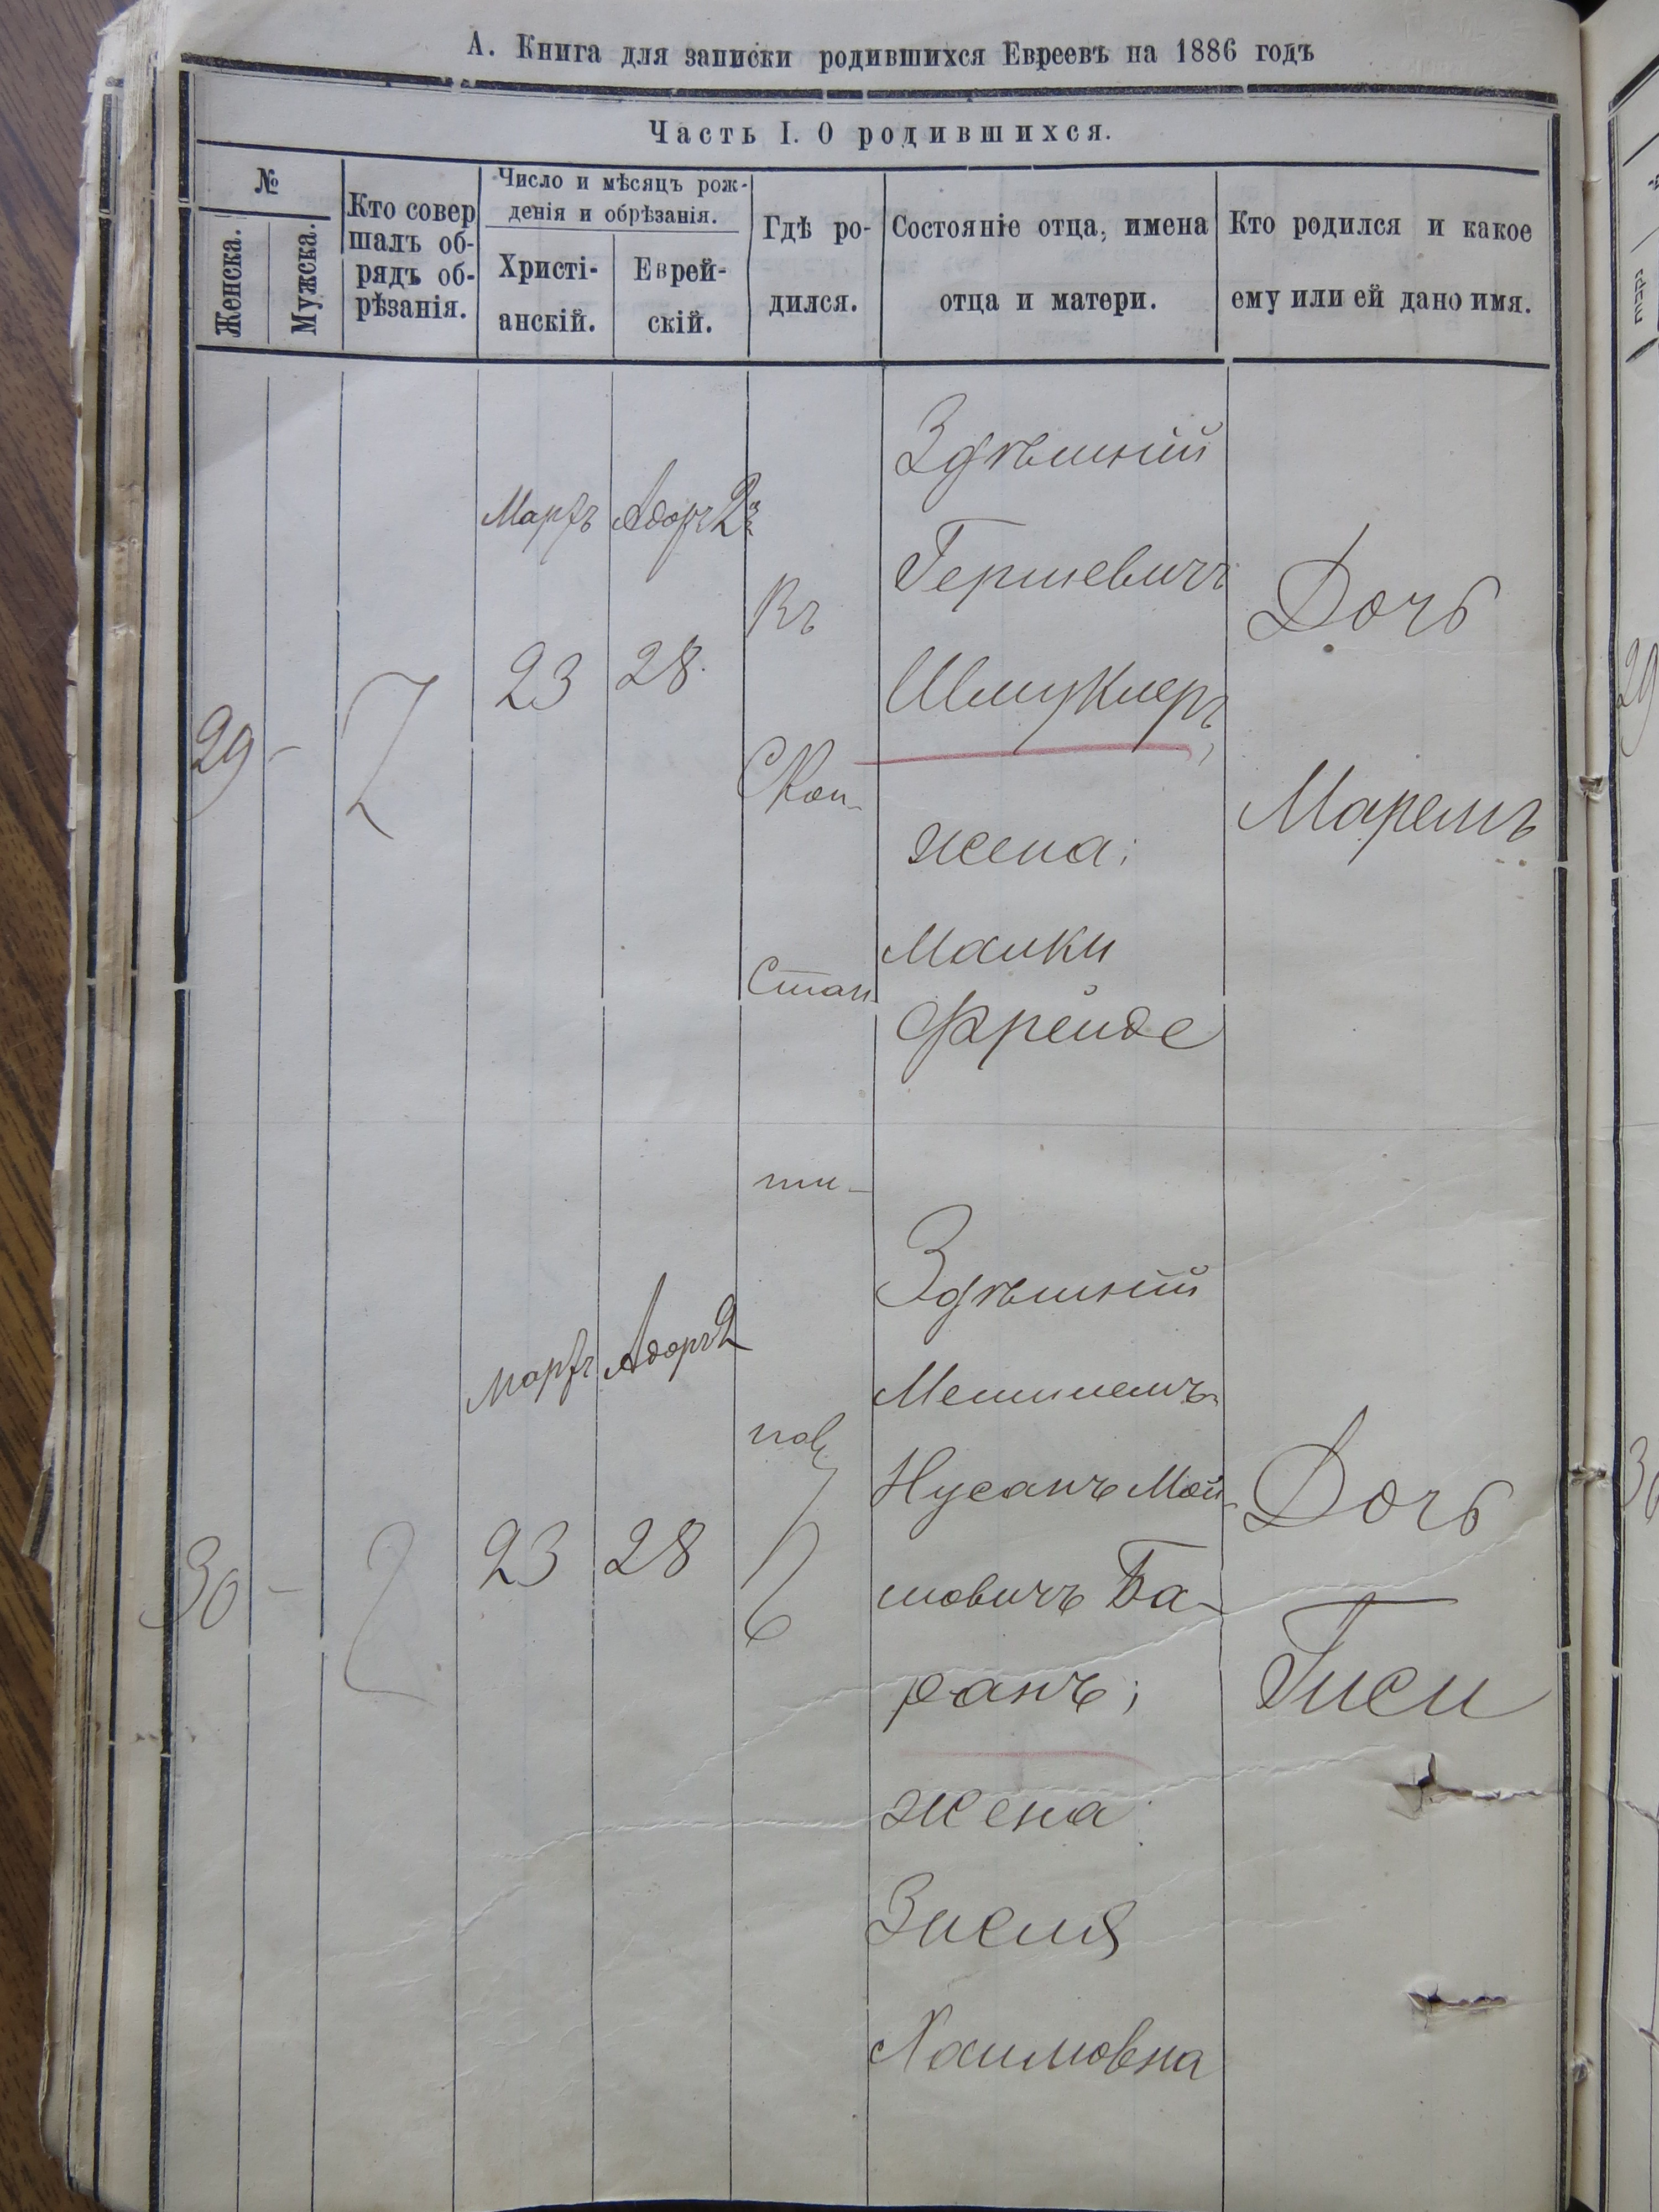 А. Книга для записки родившихся Евреевъ на 1886 годъ
Часть I. О родившихся.
№
Женска.
Мужска.
Кто совер
шалъ об-
рядъ об-
рѣзанія.
Число и мѣсяцъ рож-
денія и обрѣзанія.
Христі-
анскій.
Еврей-
скій.
Гдѣ ро-
дился.
Состояніе отца, имена
отца и матери.
Кто родился и какое
ему или ей дано имя.
29 -
Мартъ
23
Адоръ 2й
28.
Въ
Скон-
стан
ти-
нов
Здѣшній
Гершевичъ
Шмуклеръ,
жена:
Малки
Фрейде
Дочь
Маремъ
30 -
Мартъ
23
Адоръ 2
28
Здѣшній
Нусанъ Мой-
шовичъ Ба-
ранъ;
жена:
Зислѣ
Хаимовна
Дочь
Гиси
29